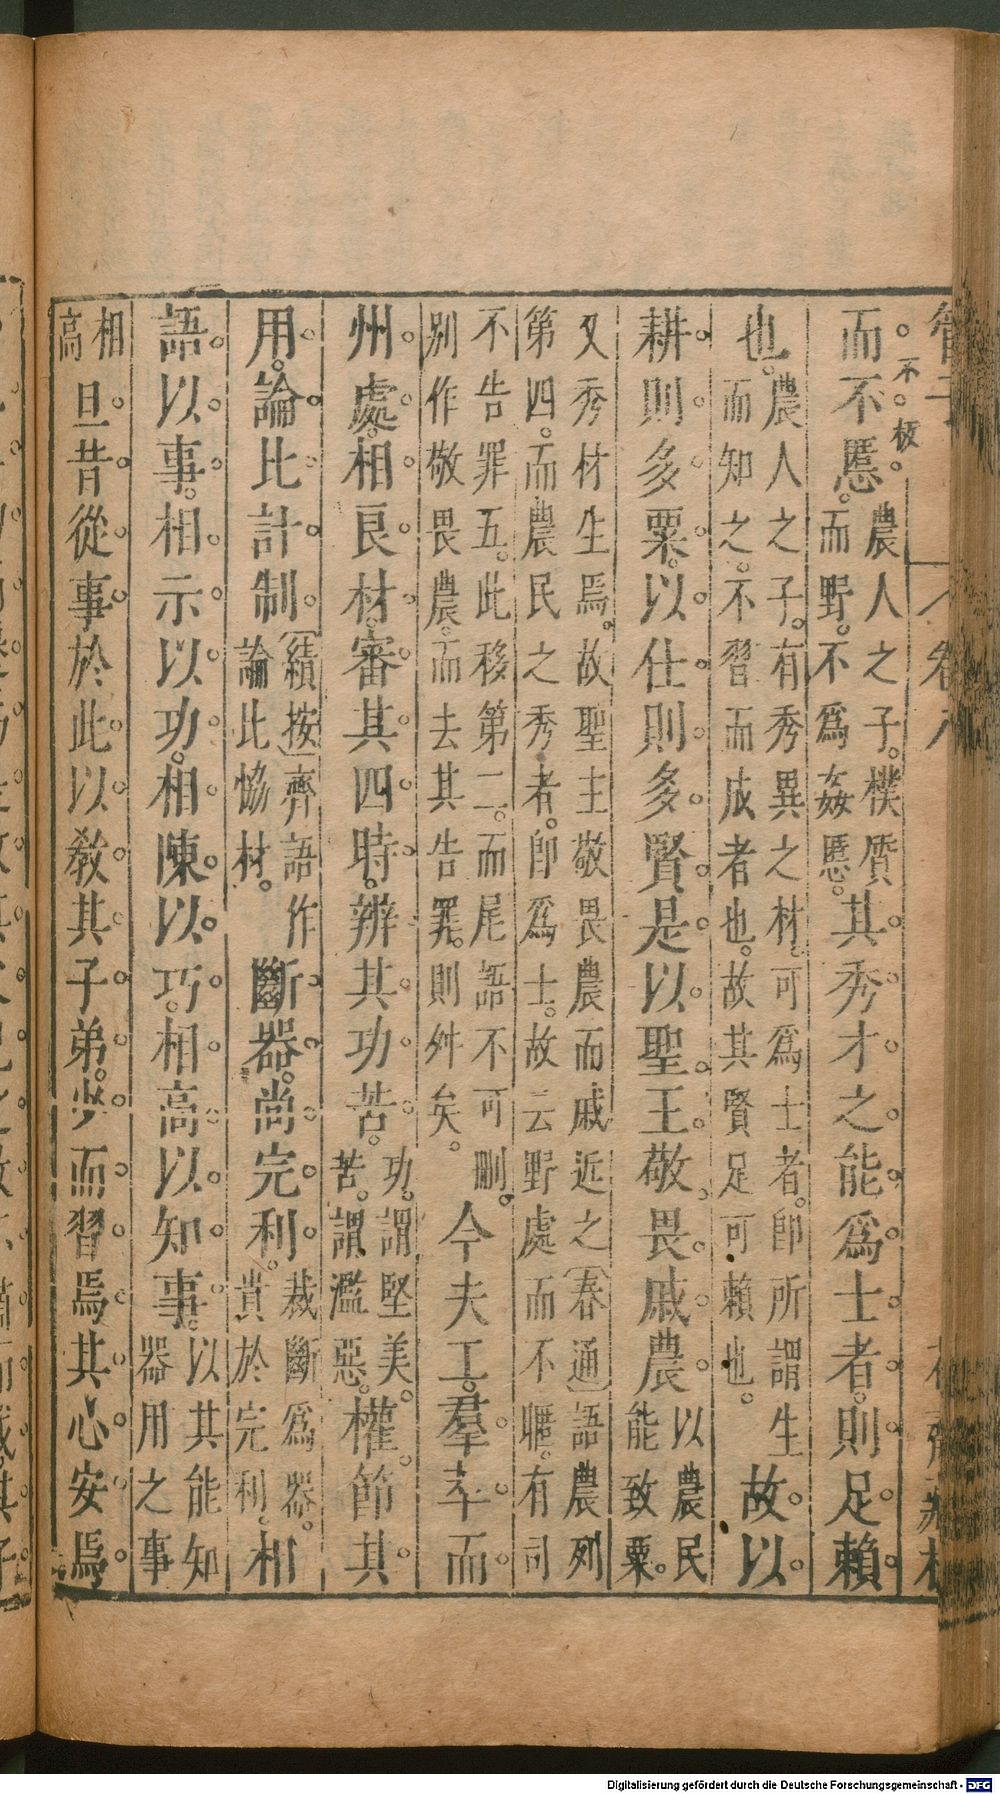 管子
卷八
不板
而不慝。農人之子。樸質而野。不爲姦慝。其秀才之能爲士者。則足賴
也。農人之子。有秀異之材。可爲士者。即所謂生而知之。不習而成者也。故其賢足可賴也。故以
耕則多粟。以仕則多賢。是以聖王敬畏戚農。以農民能致粟。
又秀材生焉。故聖主敬畏農而戚近之(春通)語農列第四。而農民之秀者。即爲士。故云野處而不暱。有司
不告罪五。此移第二。而尾語不可刪。別作敬畏農。而去其告罪。則舛矣。今夫工。羣萃而
州處。相良材。審其四時。辨其功苦。功。謂堅美。苦。謂濫惡。權節其
用。論比計制(績按)齊語作論比恊材。斷器。尚完利。裁斷爲器。貴於完利。相
語以事。相示以功。相陳以巧。相高以知事。以其能知器用之事
相高旦昔從事於此以敎其子弟。少而習焉其心安焉
Digitalisierung gefördert durch die Deutsche Forschungsgemeinschaft - DFG